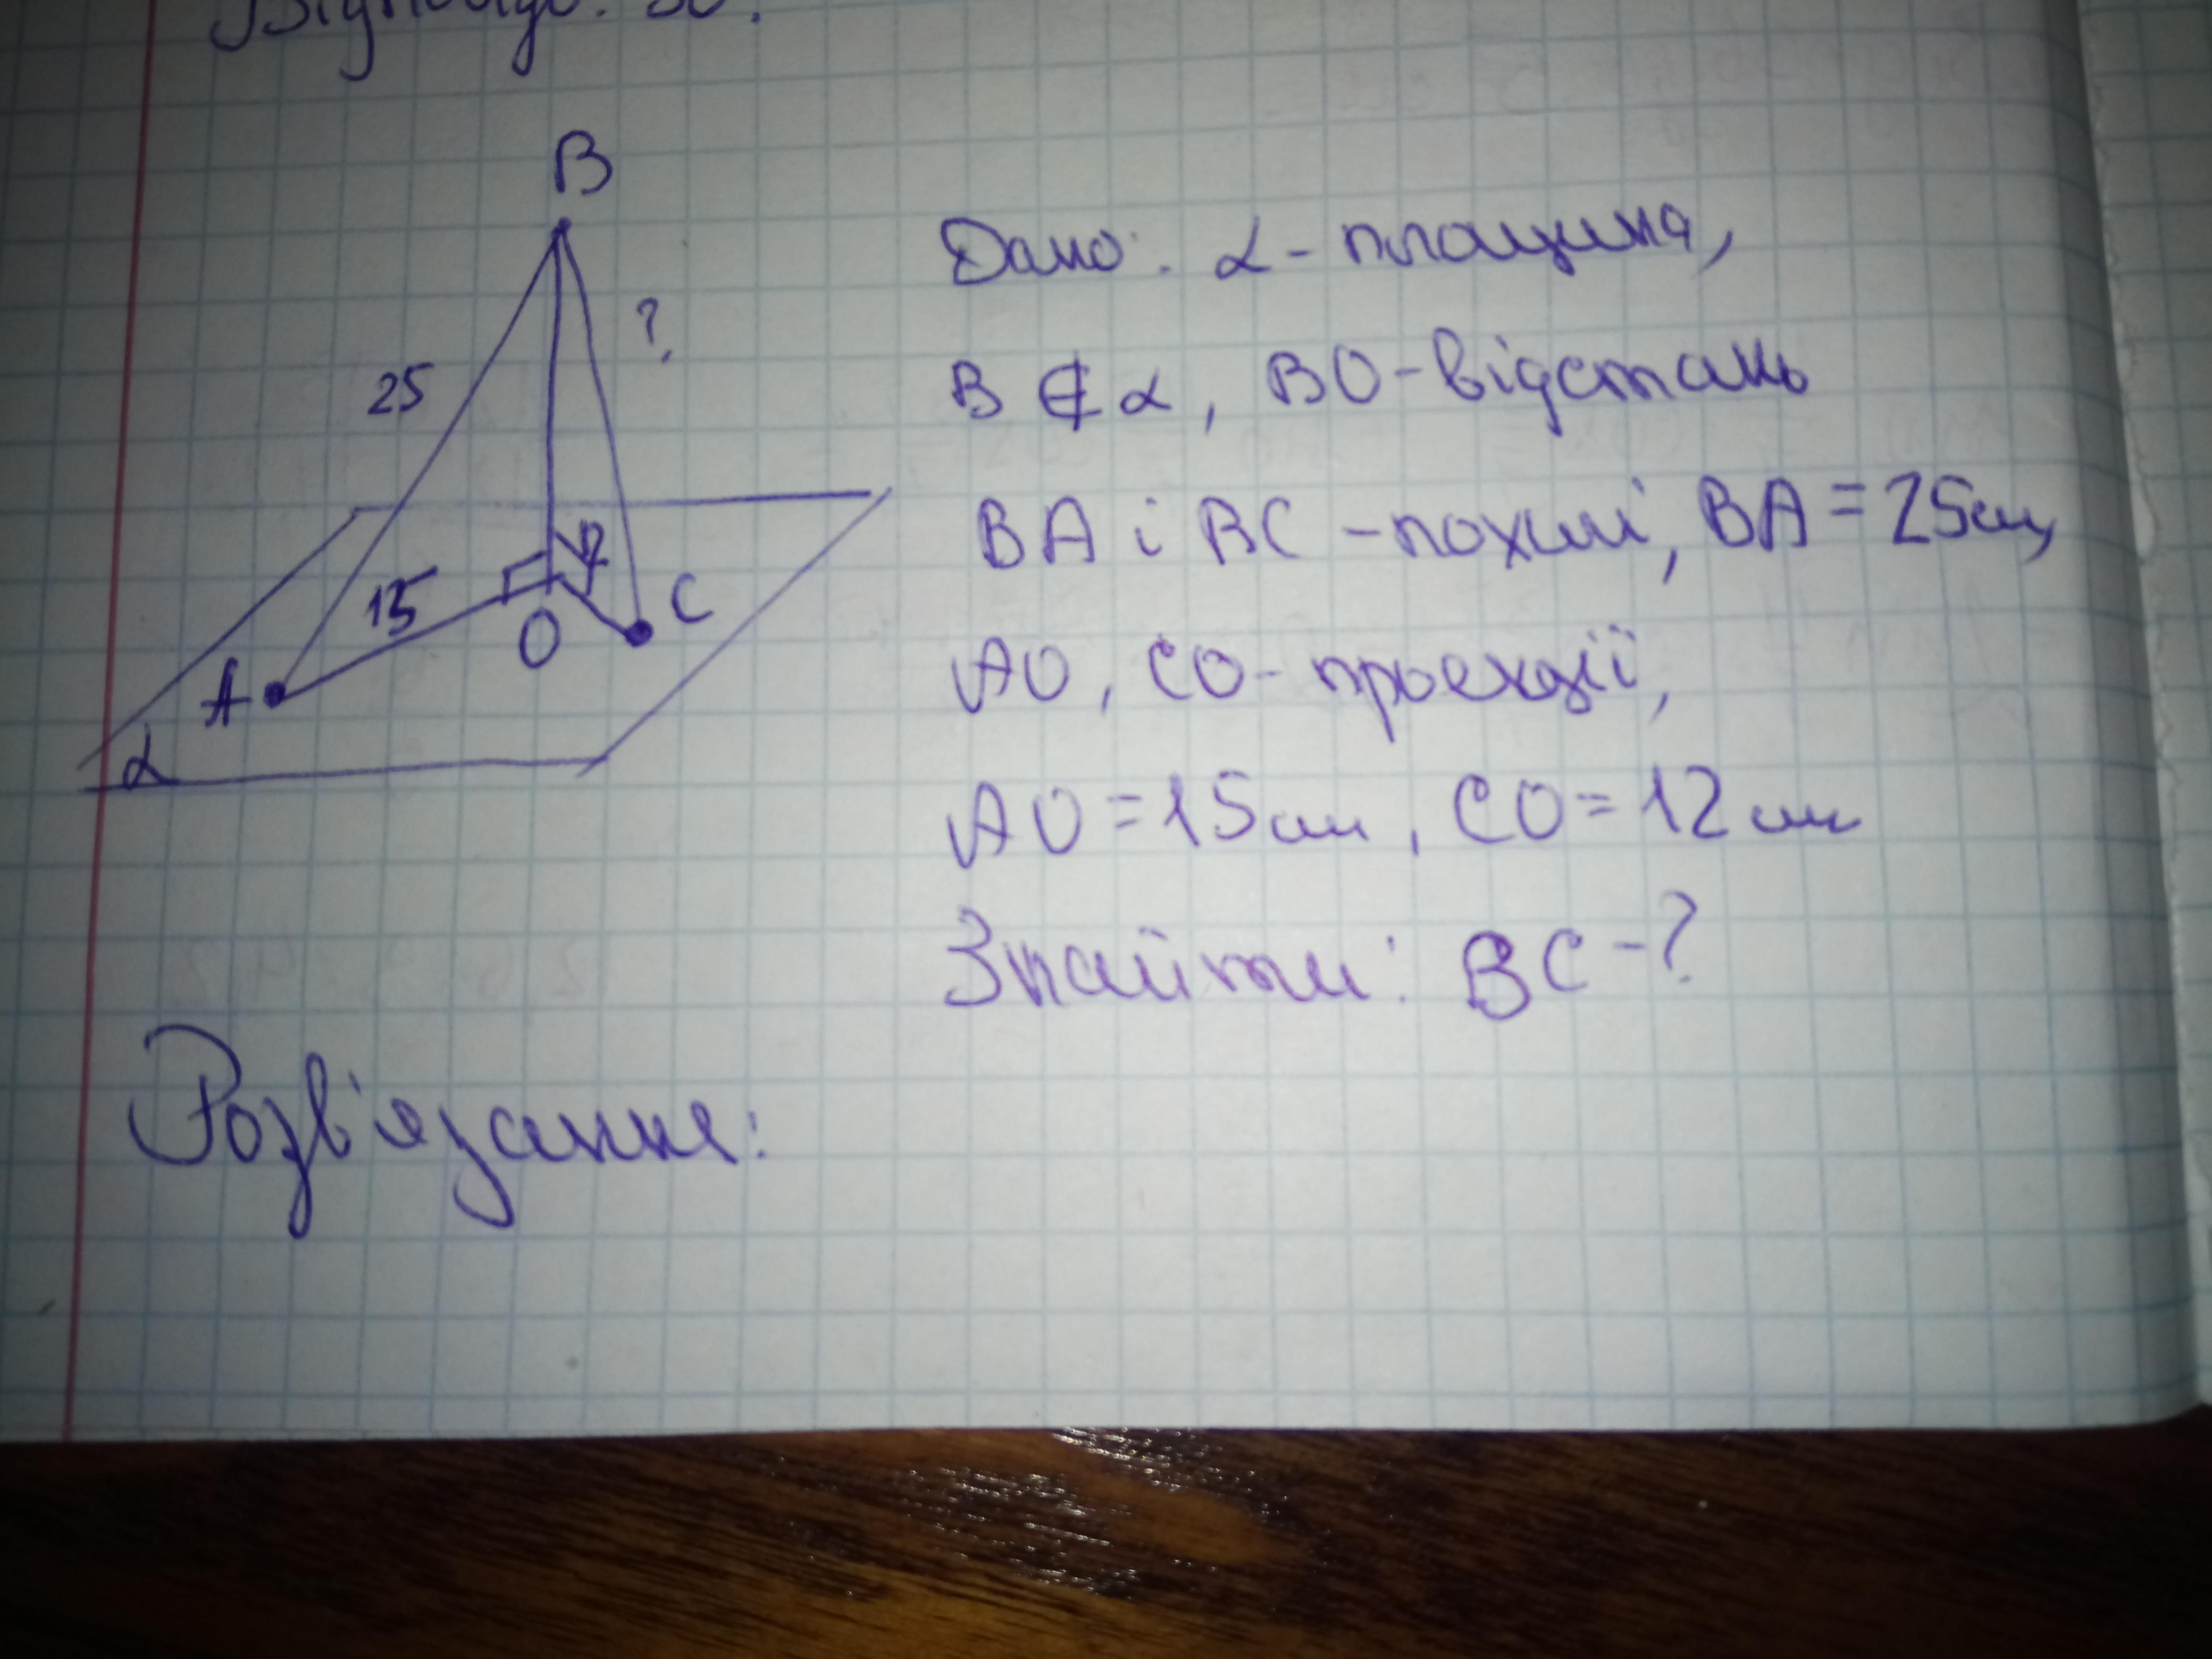 Відповідь: 30.
B
25
?
15
12
O
C
A
α
Дано: α - площина,
B ∉ α, BO - відстань
BA і BC - похилі, BA = 25см,
AO, CO - проекції,
AO = 15см, CO = 12 см
Знайти: BC - ?
Розв'язання: